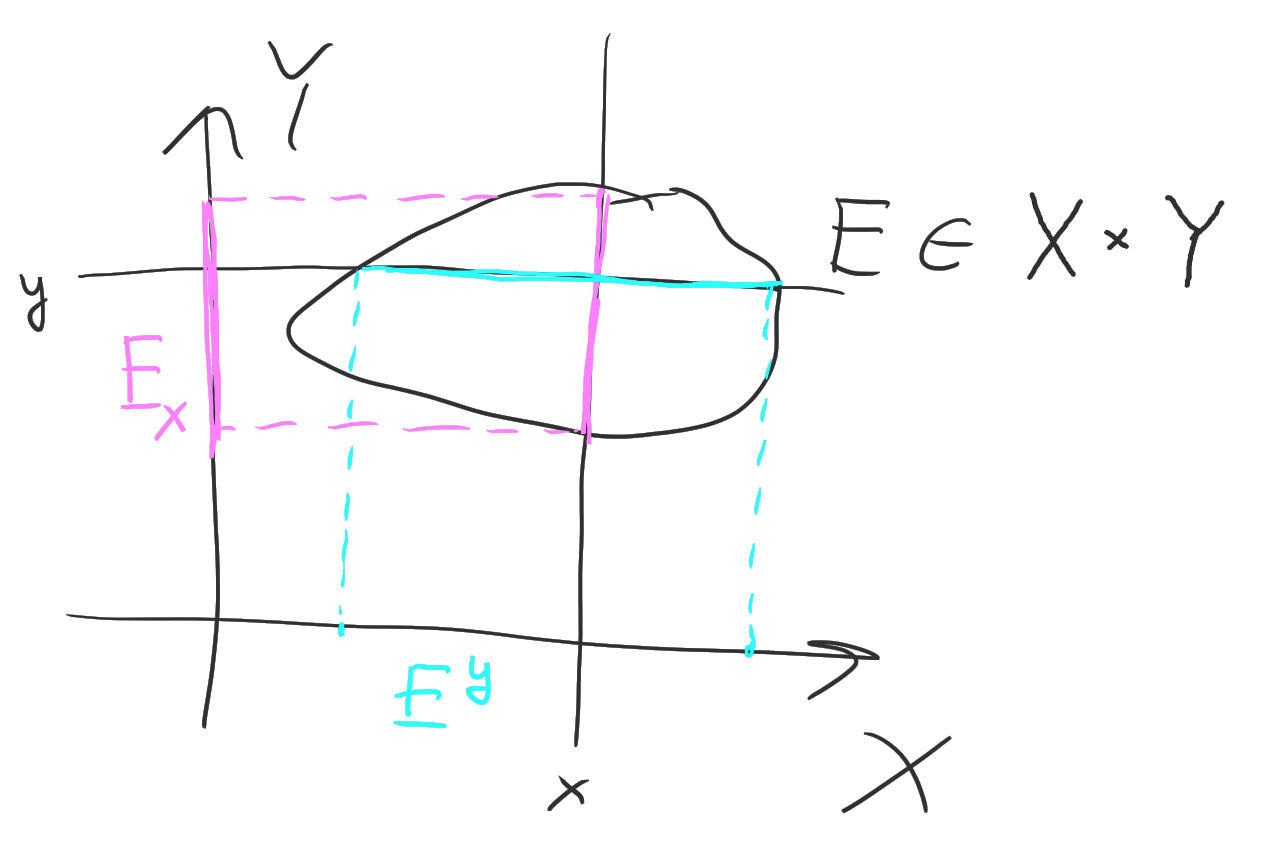 Y
E ∈ X × Y
y
E_x
E^y
x
X